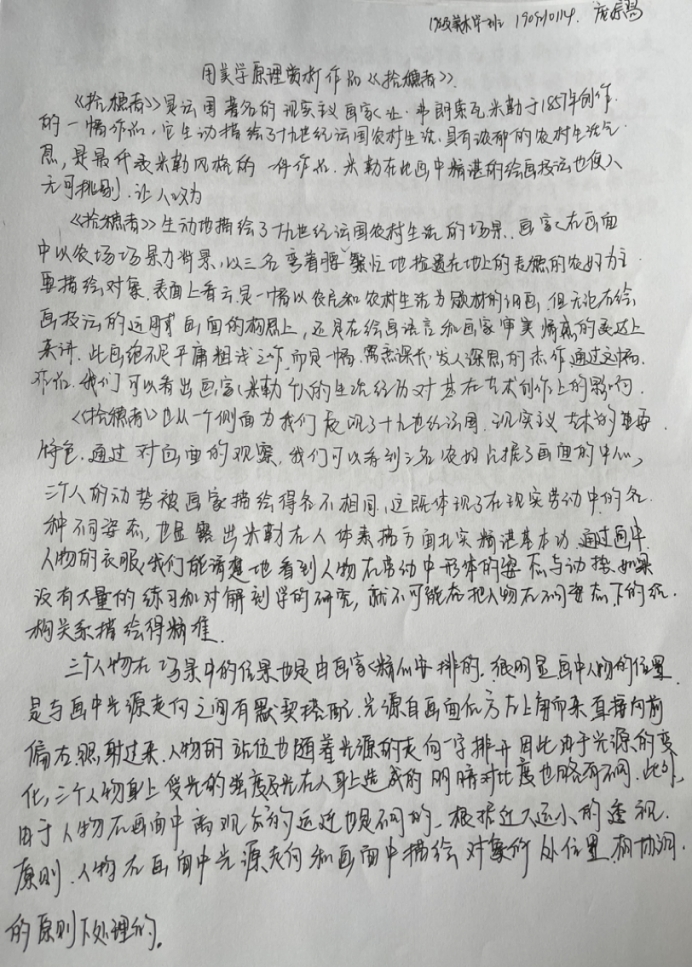 19级美术一班 190910114
用美学原理赏析作品《拾穗者》.
《拾穗者》是法国著名的现实主义画家让·弗朗索瓦·米勒于1857年创作
的一幅作品,它生动描绘了十九世纪法国农村生活,具有浓郁的农村生活气
息,是最代表米勒风格的一件作品.米勒在此画中精湛的绘画技法也使人
无可挑剔.让人叹为
《拾穗者》生动地描绘了十九世纪法国农村生活的场景.画家在画面
中以农场场景为背景,以三名弯着腰 繁忙地拾遗在地上的麦穗的农妇为主
要描绘对象.表面上看去是一幅以农民和农村生活为题材的油画,但无论在绘
画技法的运用 画面的构思上,还是在绘画语言和画家审美情感的表达上
来讲.此画绝不是平庸粗浅之作,而是一幅 发人深思的杰作.通过这幅
作品.我们可以看出画家米勒个人的生活经历对其在艺术创作上的影响.
《拾穗者》也从一个侧面为我们反映了十九世纪法国.现实主义艺术的重要
特色.通过对画面的观察.我们可以看到三名农妇占据了画面的中心,
三个人的动势被画家描绘得各不相同,这既体现了在现实劳动中的各
种不同姿态,也显露出米勒在人体素描方面扎实精湛基本功.通过画中
人物的衣服,我们能清楚地看到人物在劳动中形体的姿态与动势.如果
没有大量的练习和对解剖学的研究,就不可能态把人物在不同姿态下的结
构关系描绘得精准.
三个人物在场景中的位置也是由画家精心安排的.很明显画中人物的位置
是与画中光源走向之间有默契搭配.光源自画面后方左上角而来直接向前
偏右照射过来.人物的站位也随着光源的走向一字排开因此由于光源的变
化,三个人物身上受光的强度及光在人身上造成的明暗对比度也略有不同.此外,
由于人物在画面中离观众的远近也是不同的.根据近大远小的透视.
原则.人物在画面中光源走向和画面中描绘对象所处位置相协调
的原则下处理的.